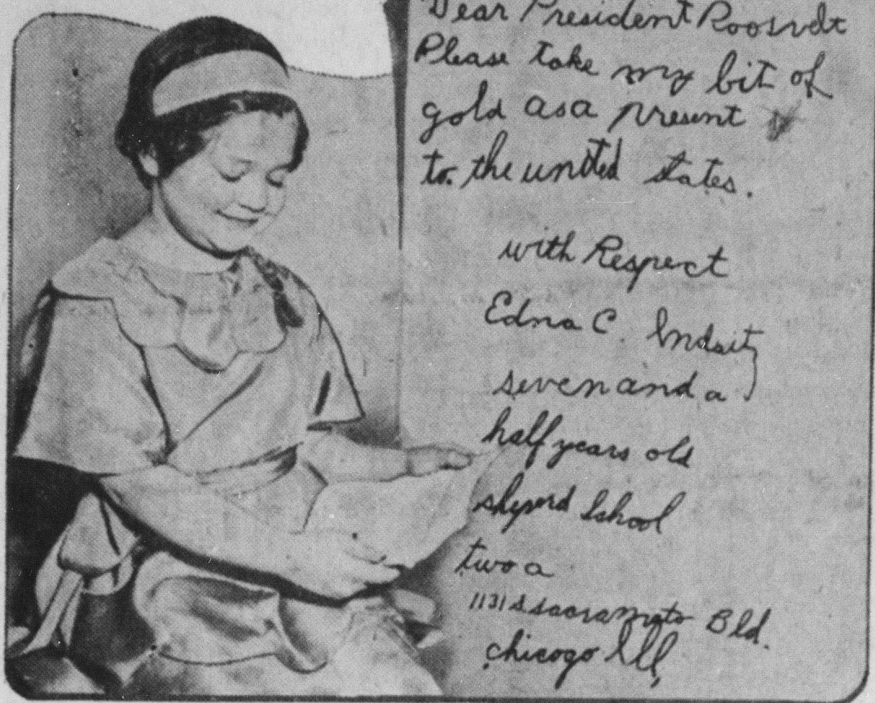 Dear President Roosvelt
Please take my bit of
gold as a present
to the united states.
with Respect
Edna C.
seven and a
half years old
sheperd School
two a
1131 S sacramato Bld.
chicogo Ill,